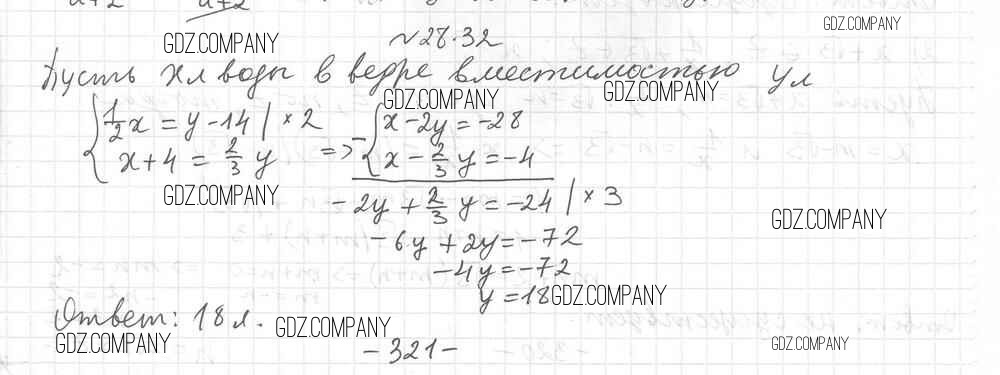 GDZ.COMPANY
GDZ.COMPANY
№28.32
Пусть x л воды в ведре вместимостью y л
GDZ.COMPANY
GDZ.COMPANY
{ 1/2 x = y - 14 | × 2
x + 4 = 2/3 y
=> - { x - 2y = -28
x - 2/3 y = -4
GDZ.COMPANY
- 2y + 2/3 y = -24 | × 3
GDZ.COMPANY
- 6y + 2y = -72
- 4y = -72
y = 18
GDZ.COMPANY
Ответ: 18 л.
GDZ.COMPANY
GDZ.COMPANY
- 321 -
GDZ.COMPANY